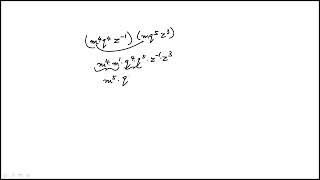 (m⁴q⁴z⁻¹)(mq⁵z³)
m⁴m¹·q⁴q⁵·z⁻¹·z³
m⁵·q